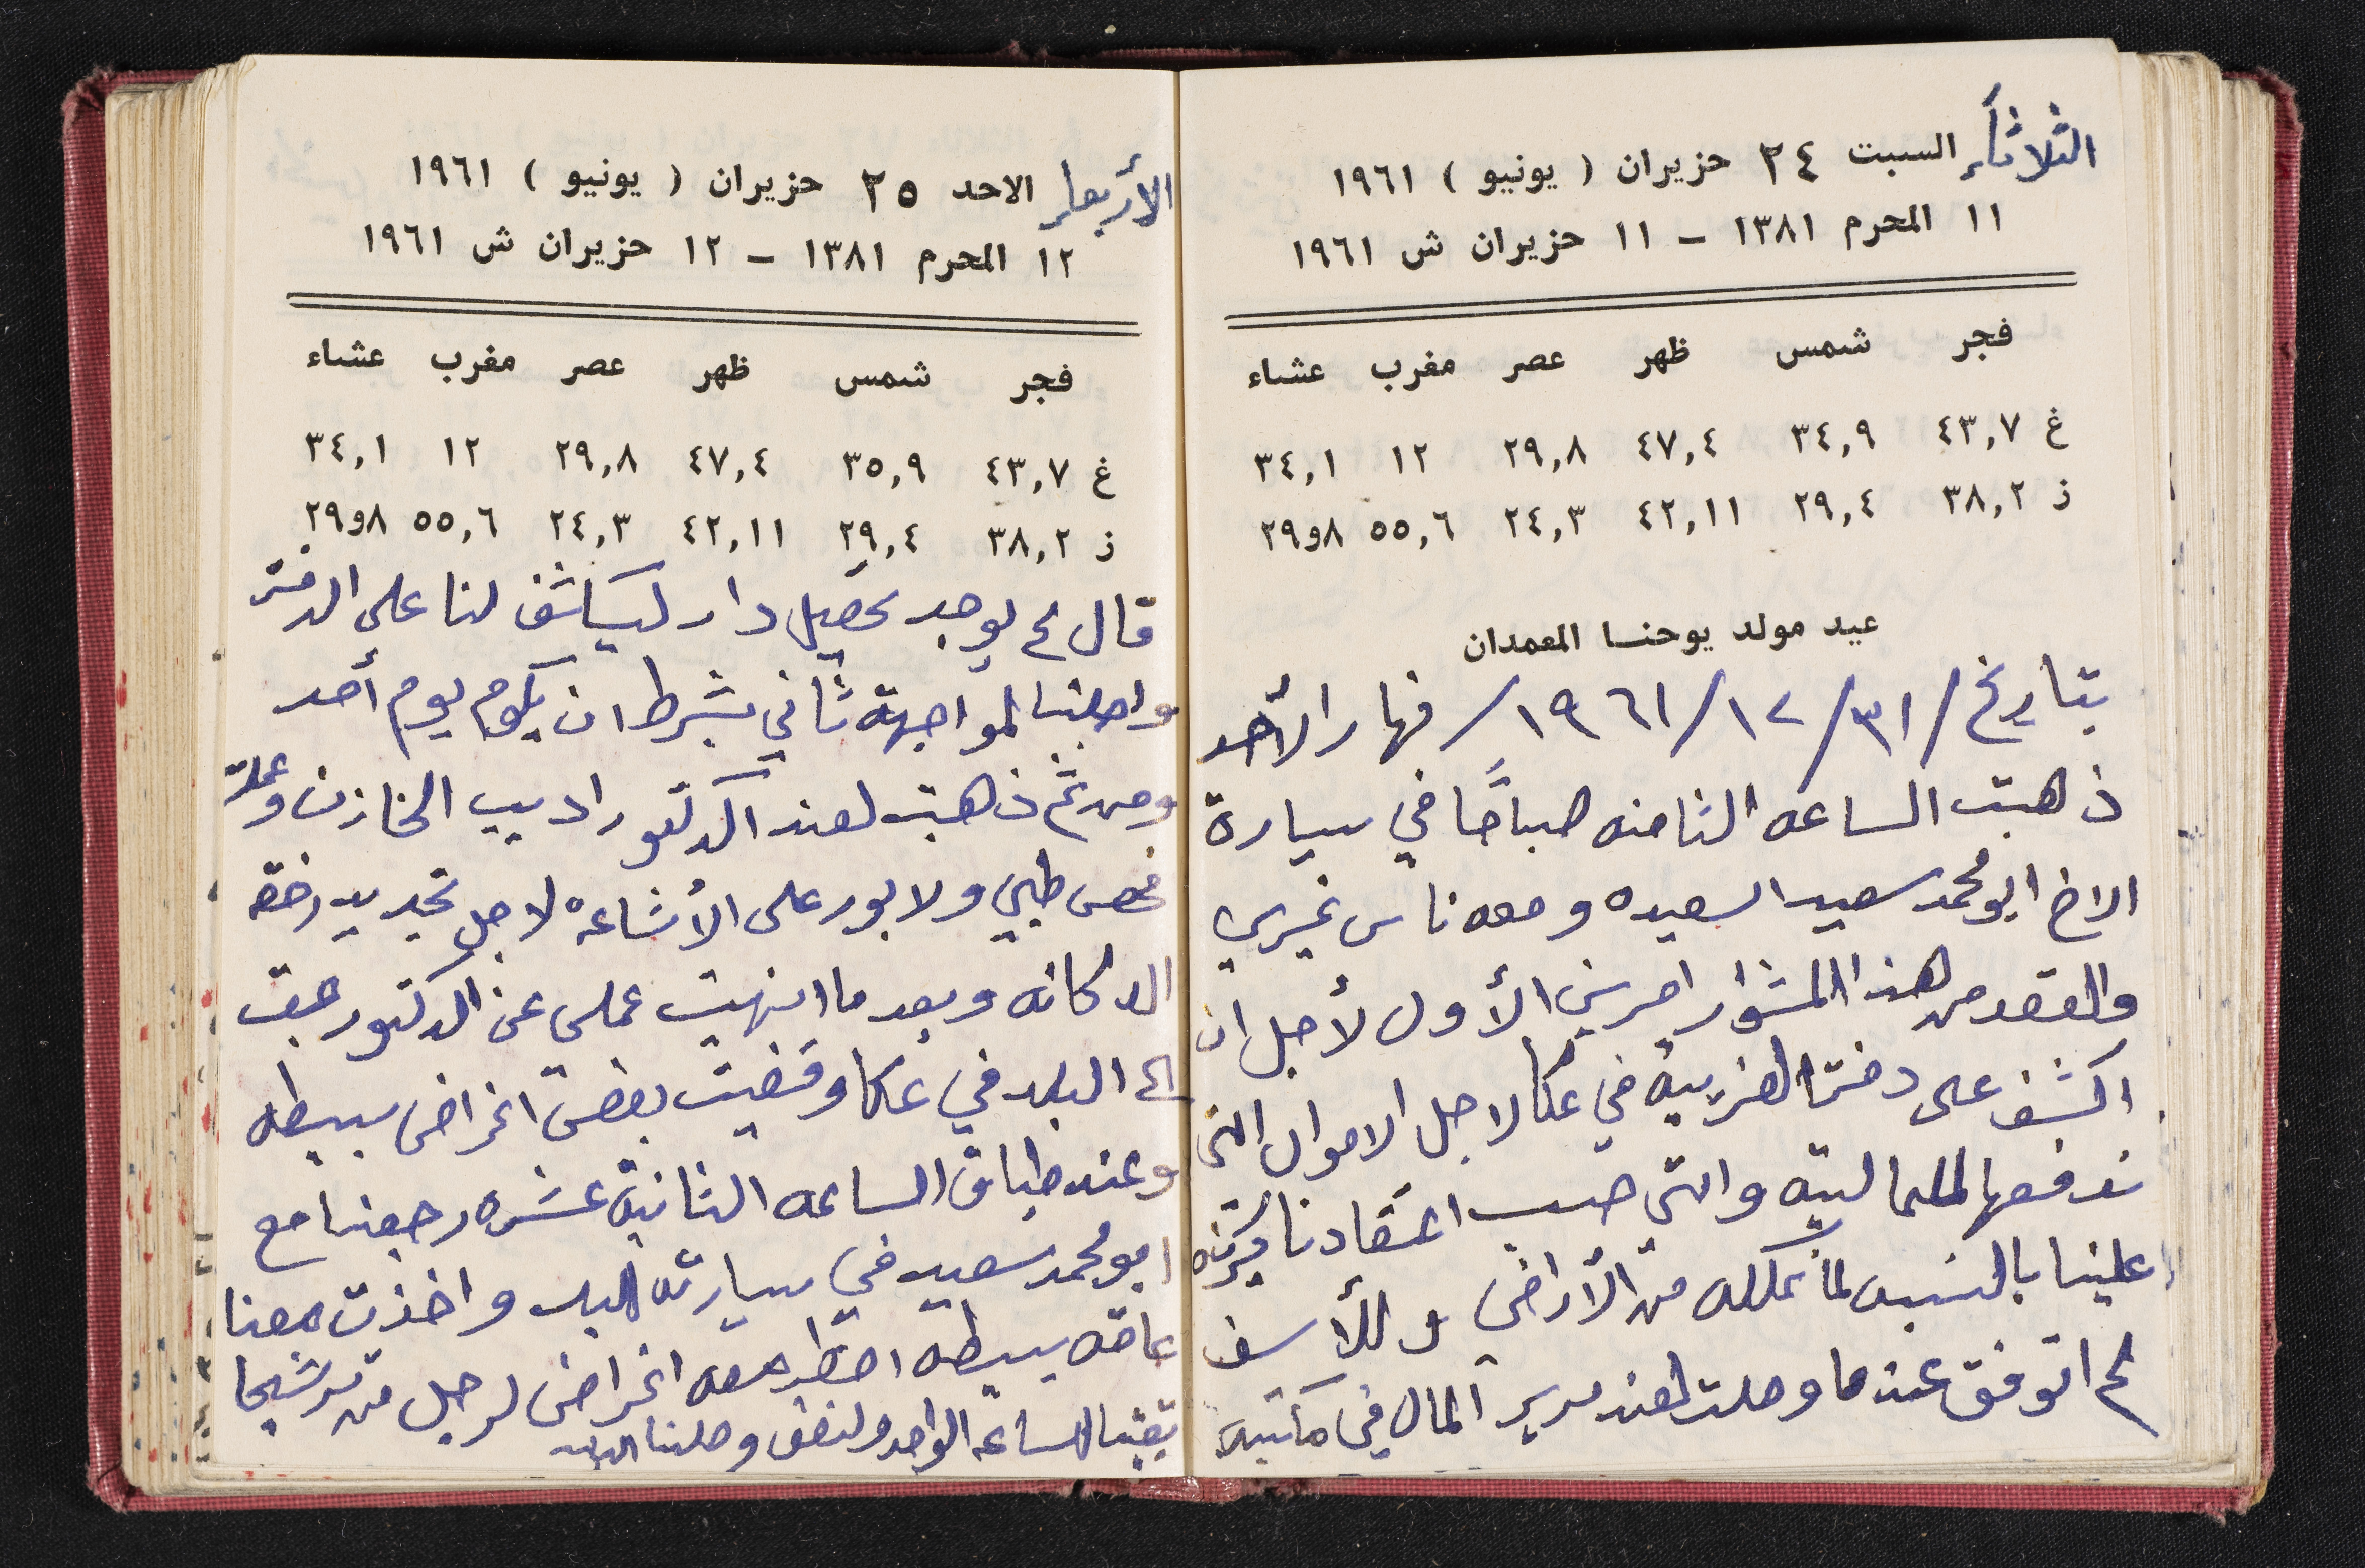 الثلاثاء السبت ٢٤ حزيران ( يونيو ) ١٩٦١
١١ المحرم ١٣٨١ – ١١ حزيران ش ١٩٦١
فجر شمس ظهر عصر مغرب عشاء
غ ٤٣,٧ ٣٤,٩ ٤٧,٤ ٢٩,٨ ١٢ ٣٤,١
ز ٣٨,٢ ٢٩,٤ ٤٢,١١ ٢٤,٣ ٥٥,٦ ٨و٢٩
عيد مولد يوحنا المعمدان
بتاريخ /٣١/١٢/١٩٦١/ نهار الأحد
ذهبت الساعه الثامنه صباحًا في سيارة
الاخ ابو محمد سعيد السعيده ومعه ناس غيري
والقصد من هذا المشوار امرين الأول لأجل ان
اكشف على دفتر الضريبة في عكا لاجل الاموال التي
ندفعها للماليه والتي حسب اعتقادنا
علينا بالنسبه لما نملكه من الأراضي وللأسف
لم اتوفق عندما وصلت لعند مدير المال في مكتبه
الأربعاء الاحد ٢٥ حزيران ( يونيو ) ١٩٦١
١٢ المحرم ١٣٨١ – ١٢ حزيران ش ١٩٦١
فجر شمس ظهر عصر مغرب عشاء
غ ٤٣,٧ ٣٥,٩ ٤٧,٤ ٢٩,٨ ١٢ ٣٤,١
ز ٣٨,٢ ٢٩,٤ ٤٢,١١ ٢٤,٣ ٥٥,٦ ٨و٢٩
قال لم يوجد دار ليكاشف لنا على الدفتر
واجلنا لمواجهة ثاني بشرط ان يكون يوم أحد
ومن ثم ذهبت لعند الدكتور اديب الخازن وعملت
فحص طبي ولابور على الأشاعة لاجل تجديد رخصة
الدكانه وبعدما انهيت عملي عن الدكتور رجعت
الى البلد في عكا وقضيت بعض اغراض بسيطه
وعند طباق الساعه الثانية عشره رجعنا مع
ابو محمد سعيد في سيارته للبلد واخذت معنا
عاقه بسيطه احضار معه اغراض لرجل من ترشيحا
تقريبا الساعه الواحده ونصف وصلنا البلد